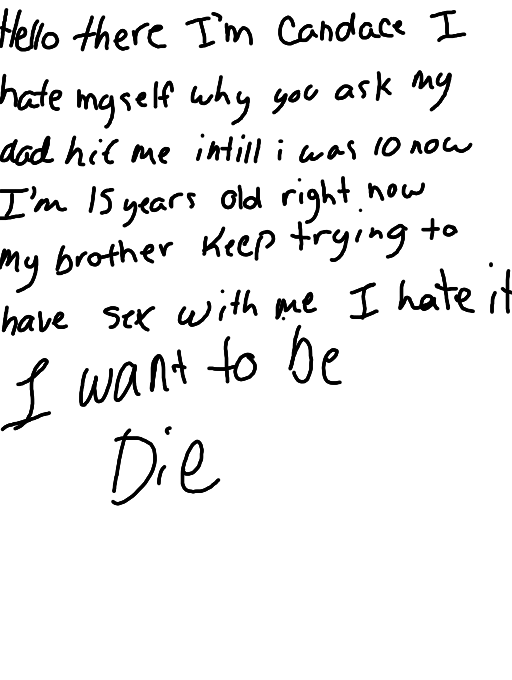 Hello there I'm Candace I
hate myself why you ask my
dad hit me intill i was 10 now
I'm 15 years old right now
my brother keep trying to
have sex with me I hate it
I want to be
Die